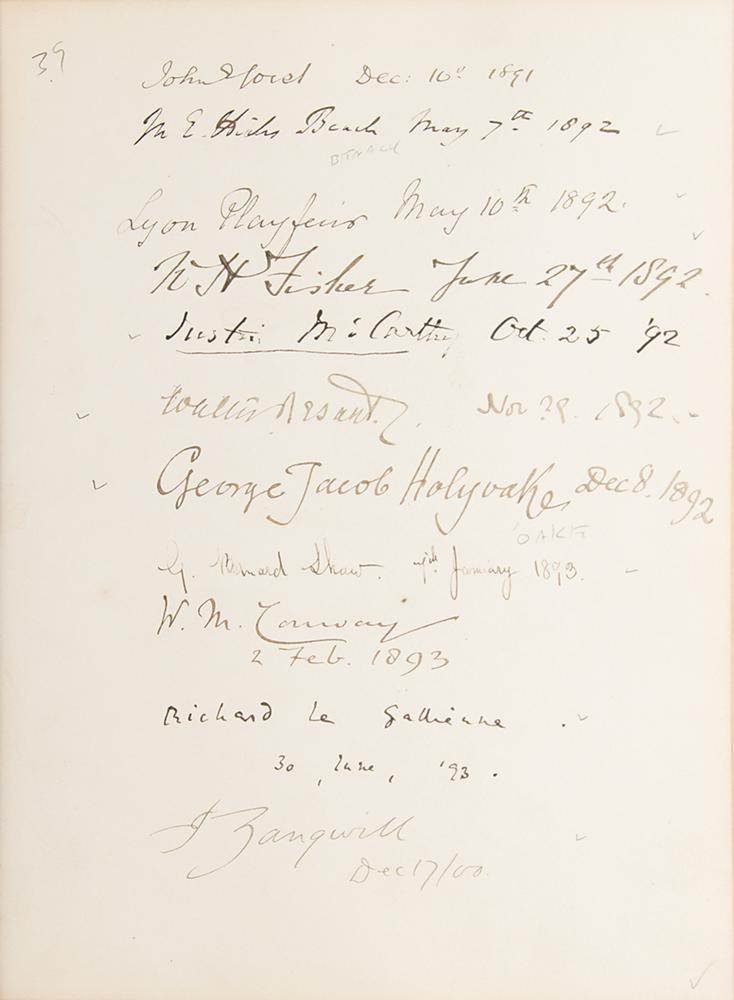 39
John Dec: 10th 1891
M E. Hicks Beach May 7th 1892
BEACH
Lyon Playfair May 10th 1892.
W H Fisher June 27th 1892.
Justin McCarthy Oct. 25 '92
Walter Besant. Nov 29. 1892.
George Jacob Holyoake, Dec 8. 1892
OAKE
G. Bernard Shaw. January 1893.
W. M. Conway
2 Feb. 1893
Richard Le Gallienne .
30, June, '93.
I Zangwill
Dec 17/00.